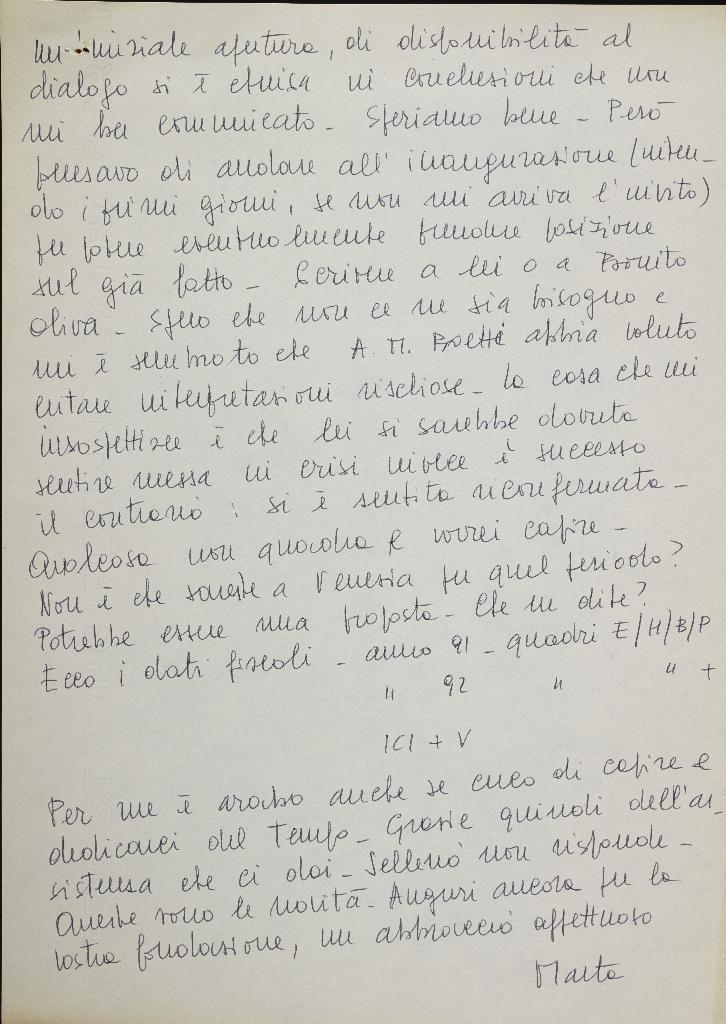 un iniziale apertura, di disponibilità al
dialogo si è chiusa in conclusioni che non
mi ha comunicato - Speriamo bene - Però
pensavo di andare all'inaugurazione (inten-
do i primi giorni, se non mi arriva l'invito)
per poter eventualmente prendere posizione
sul già fatto - Scrivere a lei o a Bonito
Oliva - Spero che non ce ne sia bisogno e
mi è sembrato che A. M. Boetti abbia voluto
evitare interpretazioni rischiose - la cosa che mi
insospettisce è che lei si sarebbe dovuta
sentire messa in crisi invece è successo
il contrario: si è sentita riconfermata -
Qualcosa non quadra e vorrei capire -
Non è che sareste a Venezia per quel periodo?
Potrebbe essere una proposta - Che ne dite?
Ecco i dati fiscali - anno 91 - quadri E/H/B/P
" 92 " " +
ICI + V
Per me è arabo anche se cerco di capire e
dedicarci del tempo - Grazie quindi dell'as-
sistenza che ci dai - Sellerio non risponde -
Queste sono le novità - Auguri ancora per la
vostra fondazione, un abbraccio affettuoso
Marta